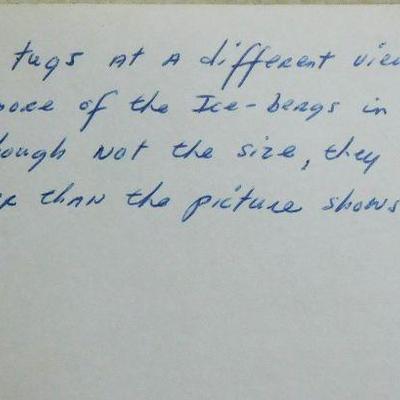 tugs at a different view
more of the Ice-bergs in
ough not the size, they
than the picture shows